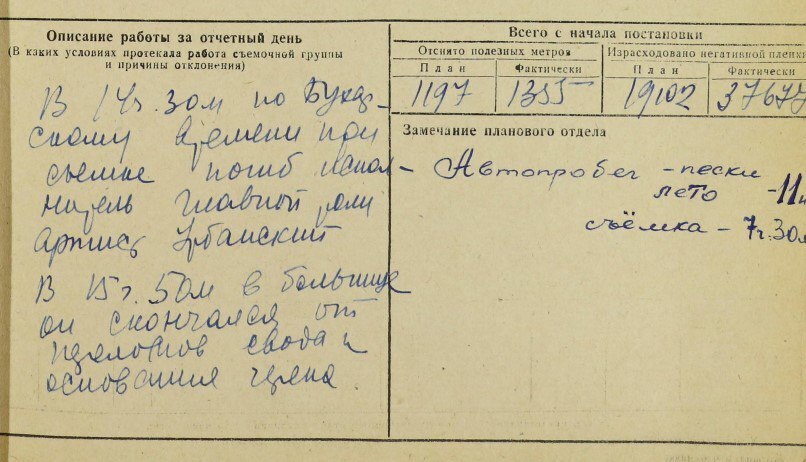 Описание работы за отчетный день
(В каких условиях протекала работа съемочной группы
и причины отклонения)
В 14ч. 30м по Бухар-
скому времени при
съемке погиб испол-
нитель главной роли
артист Урбанский
В 15ч. 50м в больнице
он скончался от
переломов свода и
основания черепа.
Всего с начала постановки
Отснято полезных метров
Израсходовано негативной пленки
План
Фактически
План
Фактически
1197
1355
19102
37677
Замечание планового отдела
Автопробег - пески
лето - 11ч
съёмка - 7ч. 30м